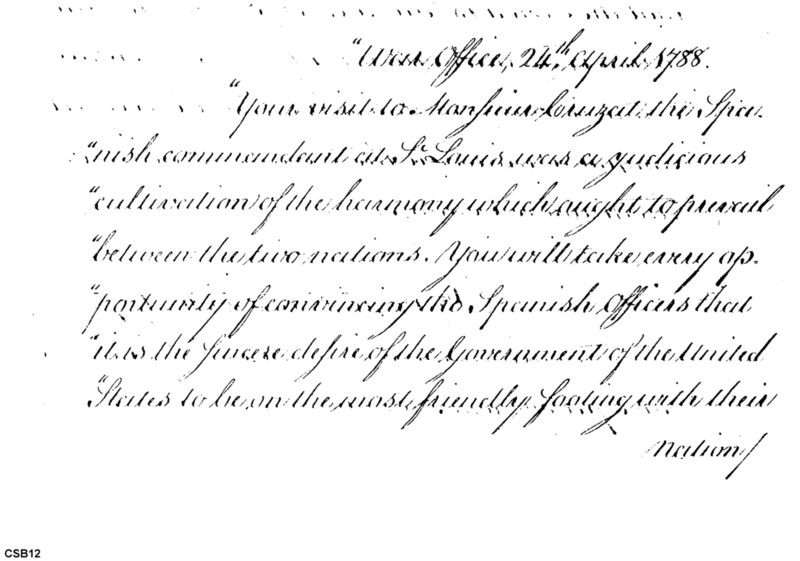 "War Office, 24th April 1788.
"Your visit to Monsieur Cruzat the Spa-
"nish commandant at St. Louis was a judicious
"cultivation of the harmony which aught to prevail
"between the two nations. You will take every op-
"portunity of convincing the Spanish Officers that
"it is the sincere desire of the Government of the United
"States to be on the most friendly footing with their
nation/
CSB12